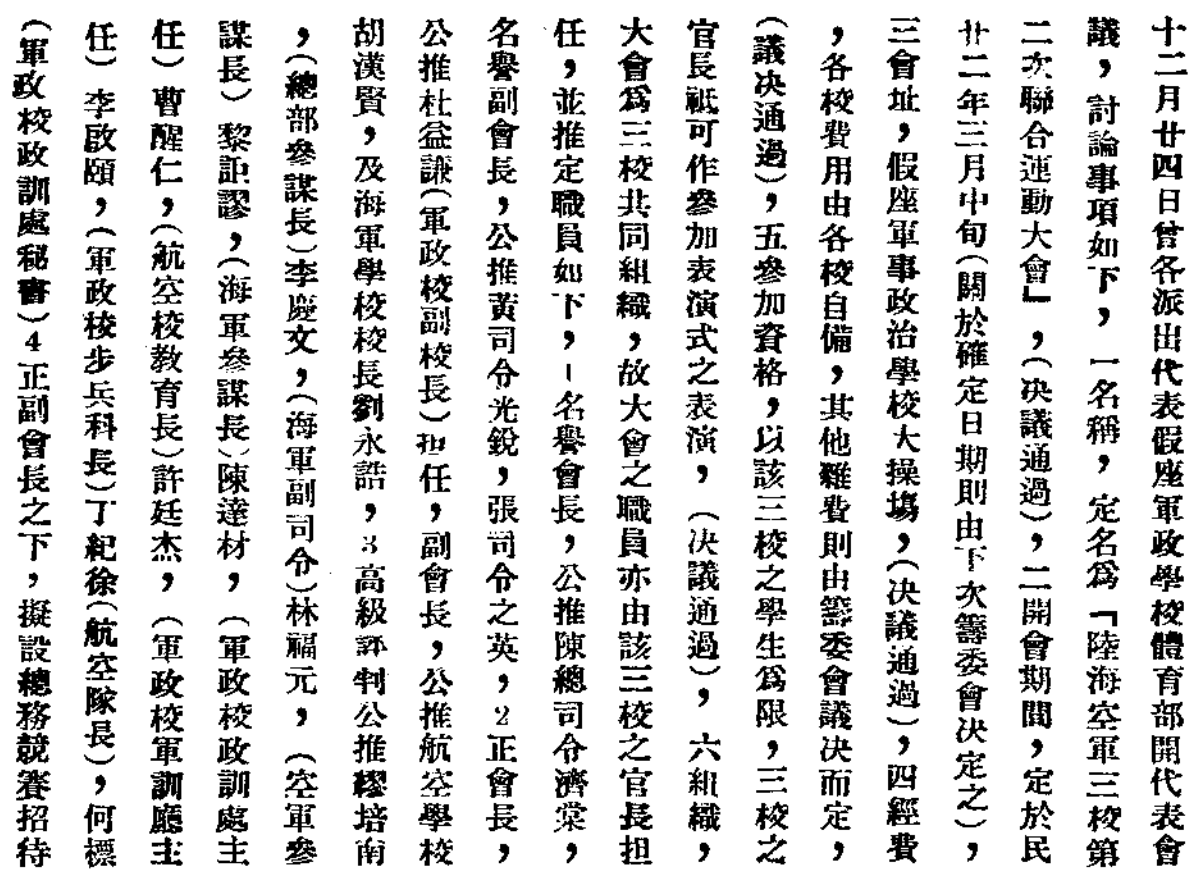 十二月廿四日曾各派出代表假座軍政學校體育部開代表會
議，討論事項如下，一名稱，定名爲「陸海空軍三校第
二次聯合運動大會」，（決議通過），二開會期間，定於民
廿二年三月中旬（關於確定日期則由下次籌委會決定之），
三會址，假座軍事政治學校大操塲，（決議通過），四經費
，各校費用由各校自備，其他雜費則由籌委會議決而定，
（議決通過），五參加資格，以該三校之學生爲限，三校之
官長祇可作參加表演式之表演，（決議通過），六組織，
大會爲三校共同組織，故大會之職員亦由該三校之官長担
任，並推定職員如下，1名譽會長，公推陳總司令濟棠，
名譽副會長，公推黃司令光銳，張司令之英，2正會長，
公推杜益謙（軍政校副校長）担任，副會長，公推航空學校
胡漢賢，及海軍學校校長劉永誥，3高級評判公推繆培南
，（總部參謀長）李慶文，（海軍副司令）林福元，（空軍參
謀長）黎鉅鏐，（海軍參謀長）陳達材，（軍政校政訓處主
任）曹醒仁，（航空校教育長）許廷杰，（軍政校軍訓廳主
任）李啟頤，（軍政校步兵科長）丁紀徐（航空隊長），何標
（軍政校政訓處秘書）4正副會長之下，擬設總務競賽招待